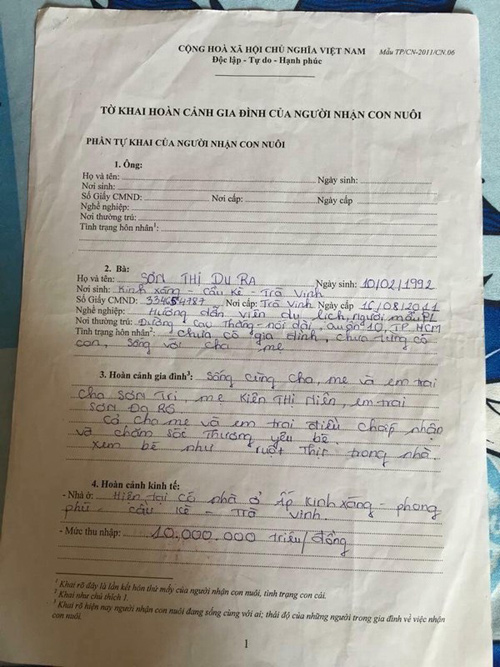 CỘNG HOÀ XÃ HỘI CHỦ NGHĨA VIỆT NAM
Mẫu TP/CN-2011/CN.06
Độc lập - Tự do - Hạnh phúc
TỜ KHAI HOÀN CẢNH GIA ĐÌNH CỦA NGƯỜI NHẬN CON NUÔI
PHẦN TỰ KHAI CỦA NGƯỜI NHẬN CON NUÔI
1. Ông:
Họ và tên: Ngày sinh:
Nơi sinh:
Số Giấy CMND: Nơi cấp: Ngày cấp
Nghề nghiệp:
Nơi thường trú:
Tình trạng hôn nhân¹:
2. Bà:
Họ và tên: SƠN THỊ DU RA Ngày sinh: 10/02/1992
Nơi sinh: Kinh xáng - cầu Kè - Trà Vinh
Số Giấy CMND: 334654787 Nơi cấp: Trà Vinh Ngày cấp 16/08/2011
Nghề nghiệp: Hướng dẫn viên du lịch, người mẫu
Nơi thường trú: Đường Cao Thắng - nối dài, Quận 10, TP HCM
Tình trạng hôn nhân²: chưa có gia đình, chưa từng có
con, sống với cha mẹ
3. Hoàn cảnh gia đình³: Sống cùng cha, mẹ và em trai
cha SƠN TRI, mẹ KIÊN THỊ HIÊN, em trai
SƠN ĐA RÔ
Cả cha mẹ và em trai điều chấp nhận
và chăm sóc thương yêu bé.
xem bé như ruột thịt trong nhà.
4. Hoàn cảnh kinh tế:
- Nhà ở: Hiện tại có nhà ở ấp Kinh xáng - phong
phú - cầu Kè - Trà Vinh.
- Mức thu nhập: 10.000.000 triệu/đồng
¹ Khai rõ đây là lần kết hôn thứ mấy của người nhận con nuôi, tình trạng con cái.
² Khai như chú thích 1.
³ Khai rõ hiện nay người nhận con nuôi đang sống cùng với ai; thái độ của những người trong gia đình về việc nhận
con nuôi.
1